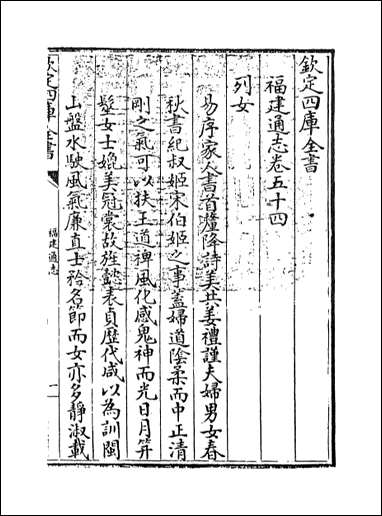 欽定四庫全書
福建通志卷五十四
列女
易序家人書首釐降詩美共姜禮謹夫婦男女春
秋書紀叔姬宋伯姬之事蓋婦道陰柔而中正清
剛之氣可以扶王道裨風化感鬼神而光日月笄
髽女士媲美冠裳故旌懿表貞歴代咸以為訓閩
山盤水駛風氣廉直士矜名節而女亦多靜淑載
欽定四庫全書
福建通志
一